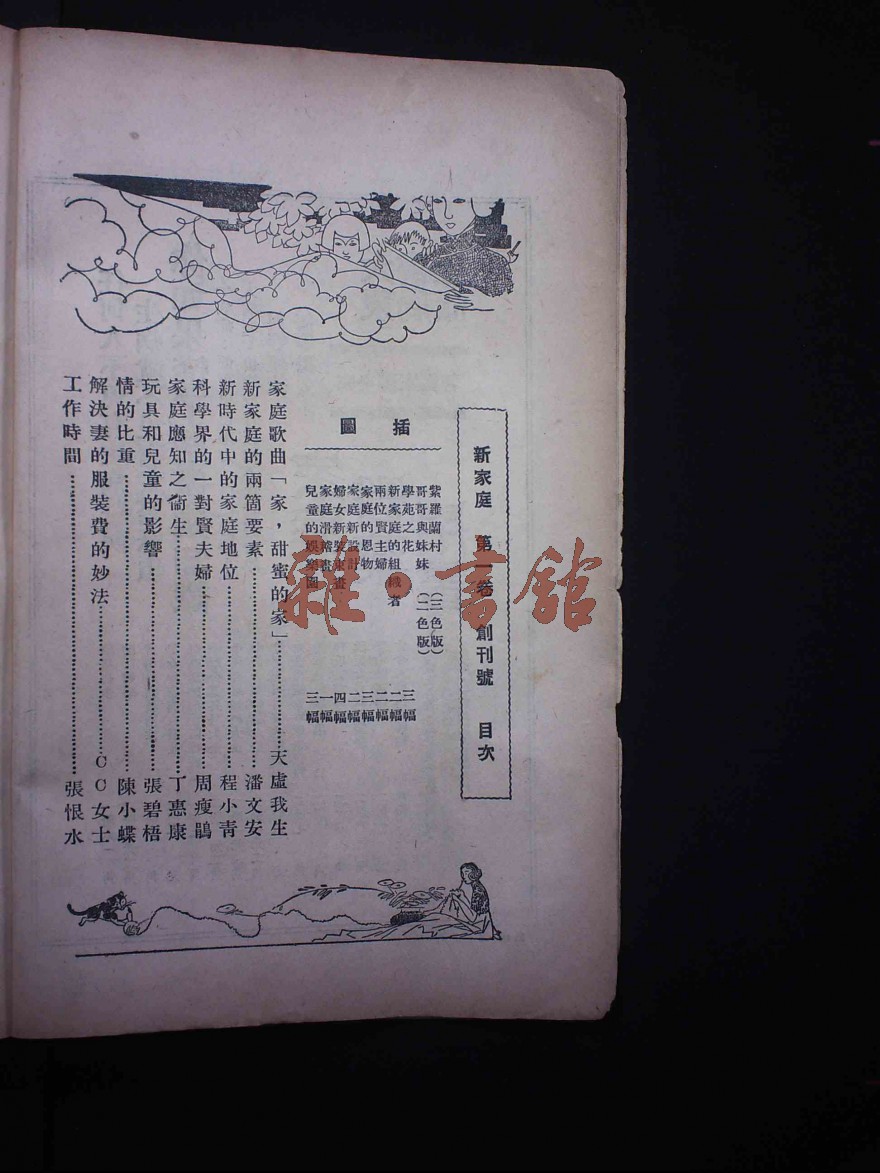 新家庭 第一卷 創刊號 目次
插圖
紫羅蘭村 (三色版)
哥哥與妹妹 (二色版)
學苑之花 三幅
新家庭的組織者 二幅
兩位賢主婦 二幅
家庭的恩物 三幅
家庭新設計 二幅
婦女新裝束畫 四幅
家庭滑稽畫 一幅
兒童的娛樂園 三幅
家庭歌曲「家，甜蜜的家」……………天虛我生
新家庭的兩箇要素……………潘文安
新時代中的家庭地位……………程小青
科學界的一對賢夫婦……………周瘦鵑
家庭應知之衞生……………丁惠康
玩具和兒童的影響……………張碧梧
情的比重……………陳小蝶
解決妻的服裝費的妙法……………CC女士
工作時間……………張恨水
雜·書館